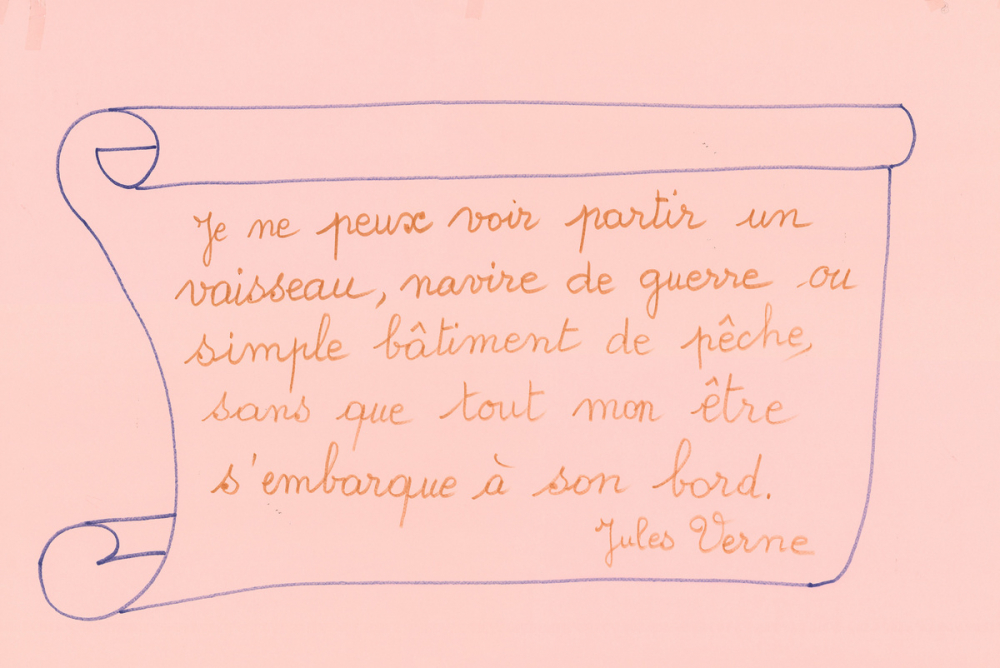 Je ne peux voir partir un
vaisseau, navire de guerre ou
simple bâtiment de pêche,
sans que tout mon être
s'embarque à son bord.
Jules Verne